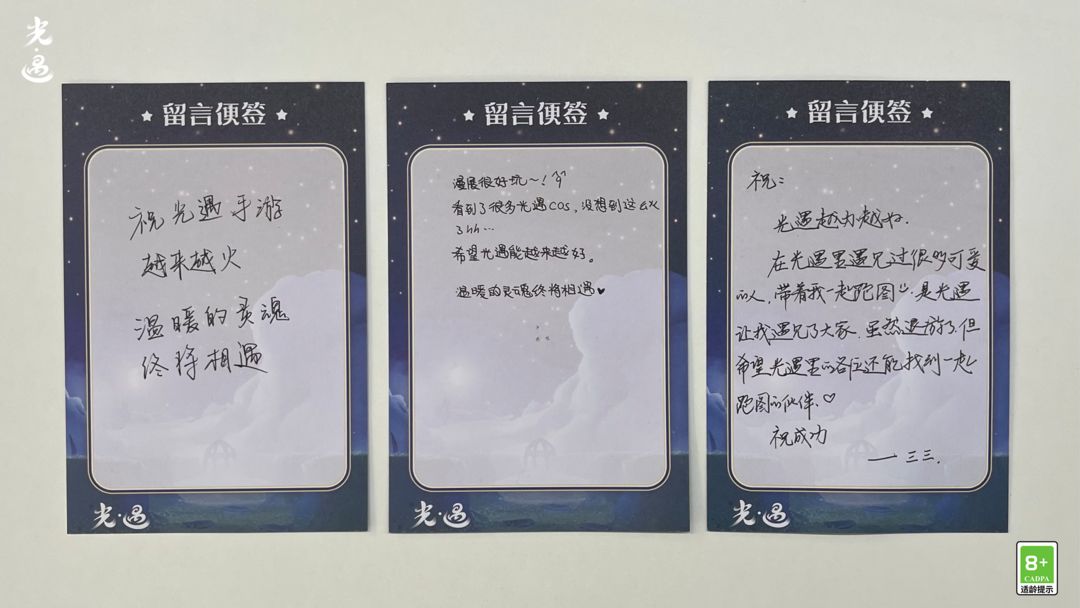 光·遇
留言便签
祝光遇手游
越来越火
温暖的灵魂
终将相遇
光·遇
留言便签
漫展很好玩~!
看到了很多光遇cos,没想到这么火
了hh…
希望光遇能越来越好。
温暖的灵魂终将相遇♥
光·遇
留言便签
祝:
光遇越办越好.
在光遇里遇见过很多可爱
的人,带着我一起跑图,是光遇
让我遇见了大家.虽然退游了,但
希望光遇里的各位还能找到一起
跑图的伙伴、♡
祝成功
—三三.
光·遇
8+
CADPA
适龄提示